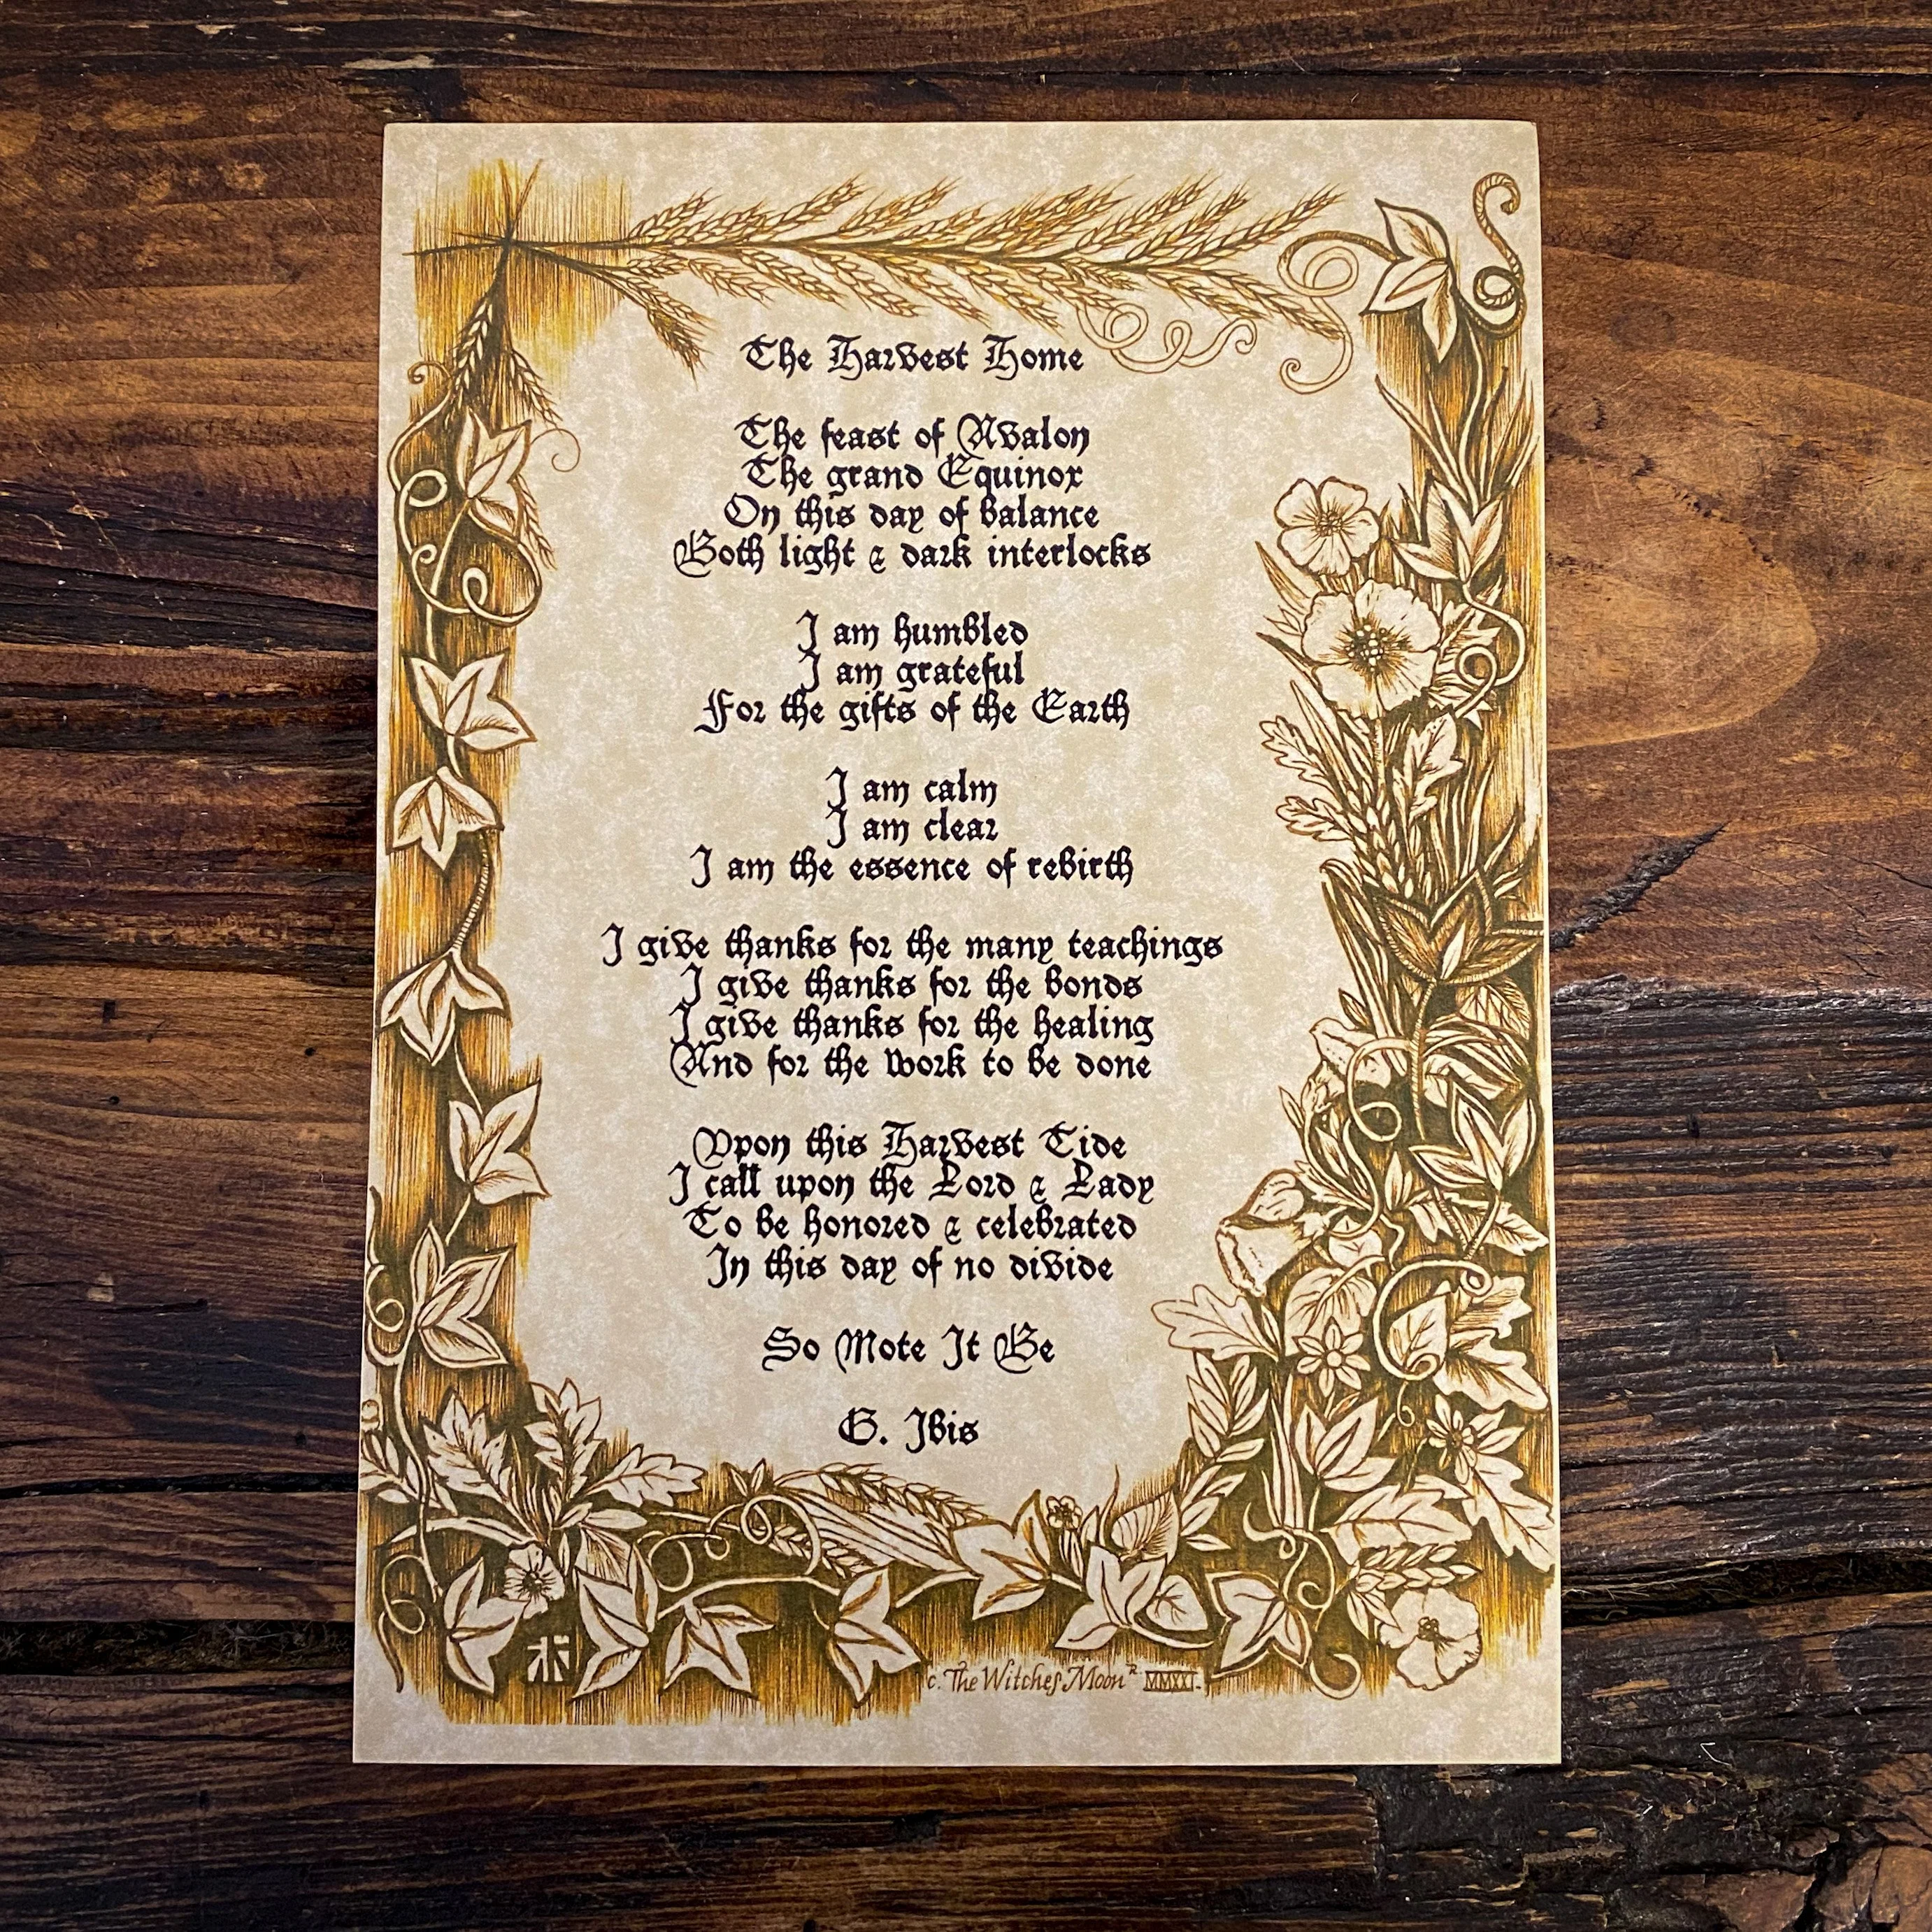 The Harvest Home
The feast of Avalon
The grand Equinox
On this day of balance
Both light & dark interlocks
I am humbled
I am grateful
For the gifts of the Earth
I am calm
I am clear
I am the essence of rebirth
I give thanks for the many teachings
I give thanks for the bonds
I give thanks for the healing
And for the work to be done
Upon this Harvest Tide
I call upon the Lord & Lady
To be honored & celebrated
In this day of no divide
So Mote It Be
G. Ibis
c. The Witches Moon R MMXXI.